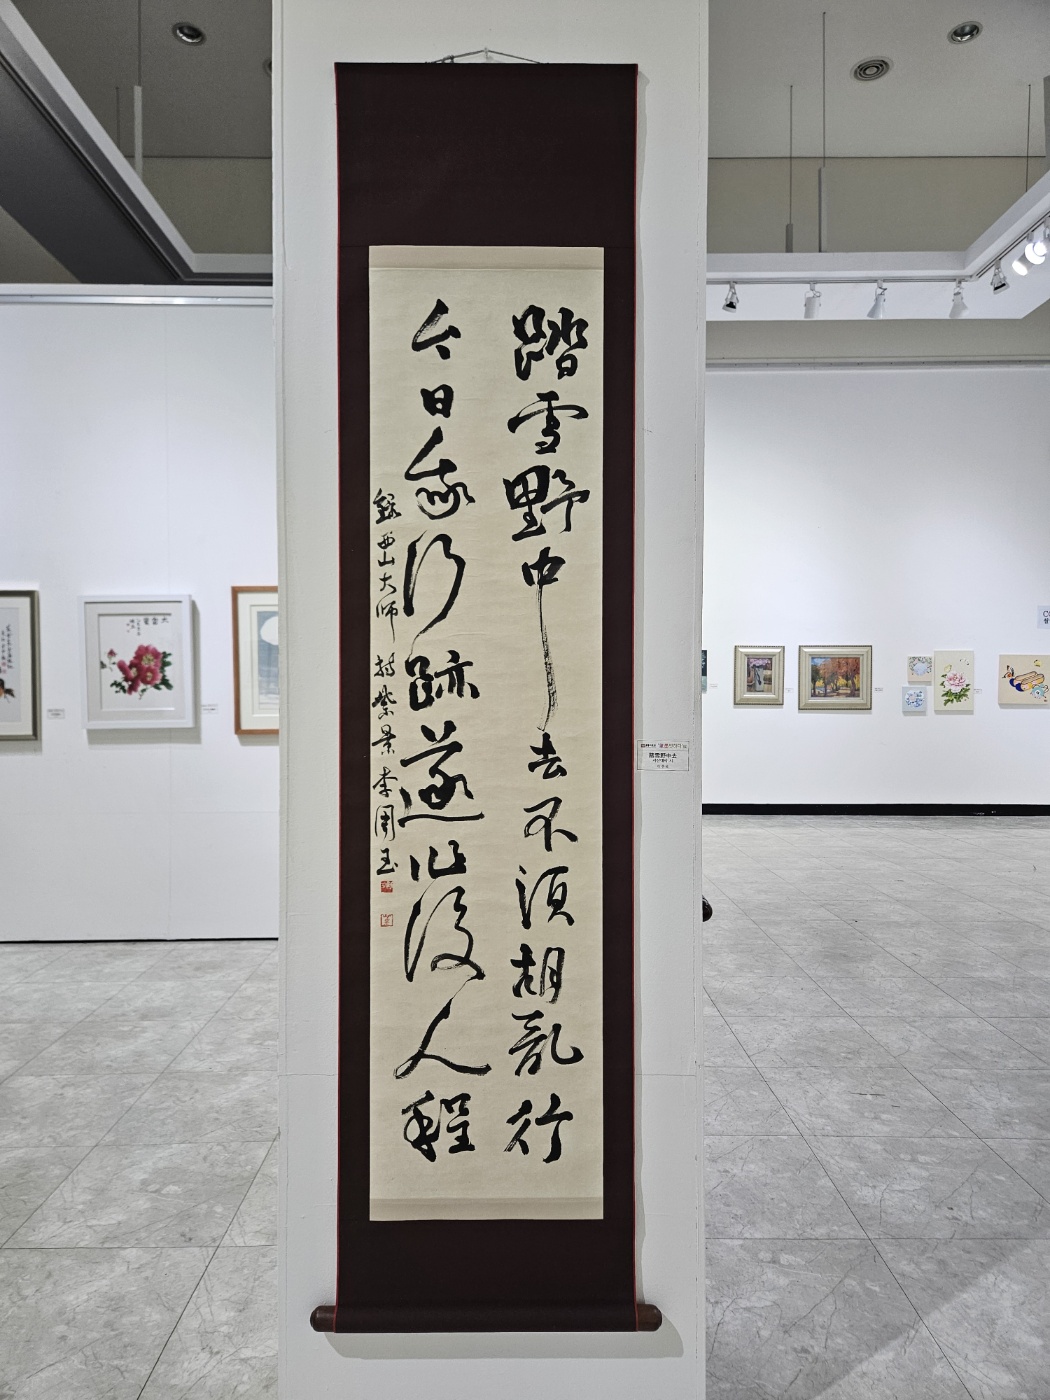 踏雪野中去不須胡亂行
今日我行跡遂作後人程
錄西山大師詩 紫景 李周玉
踏雪野中去